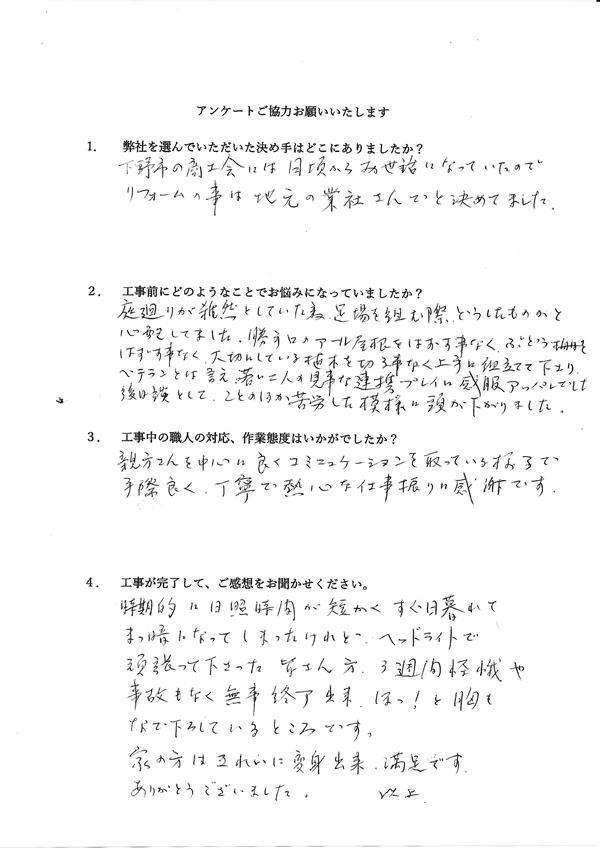 アンケートご協力お願いいたします
1. 弊社を選んでいただいた決め手はどこにありましたか？
下野市の商工会には日頃からお世話になっていたので
リフォームの事は地元の業社さんでと決めてました。
2. 工事前にどのようなことでお悩みになっていましたか？
庭廻りが雑然としていた為、足場を組む際、どうしたものかと
心配してました。勝手口のアール屋根をはずす事なく、ぶどう棚を
はずす事なく、大切にしている植木を切る事なく上手に組立てて下さり、
ベテランとは言え、若い二人の見事な連携プレイに感服アッパレでした
後日談として、ことのほか苦労した模様に頭が下がりました。
3. 工事中の職人の対応、作業態度はいかがでしたか？
親方さんを中心に良くコミニュケーションを取っている様子で
手際良く、丁寧で熱心な仕事振りに感謝です。
4. 工事が完了して、ご感想をお聞かせください。
時期的に日照時間が短かくすぐ日暮れて
まっ暗になってしまったけれど、ヘッドライトで
頑張って下さった皆さん方、3週間怪我や
事故もなく無事終了出来、ほっ！と胸を
なで下ろしているところです。
家の方はきれいに変身出来、満足です。
ありがとうございました。 以上